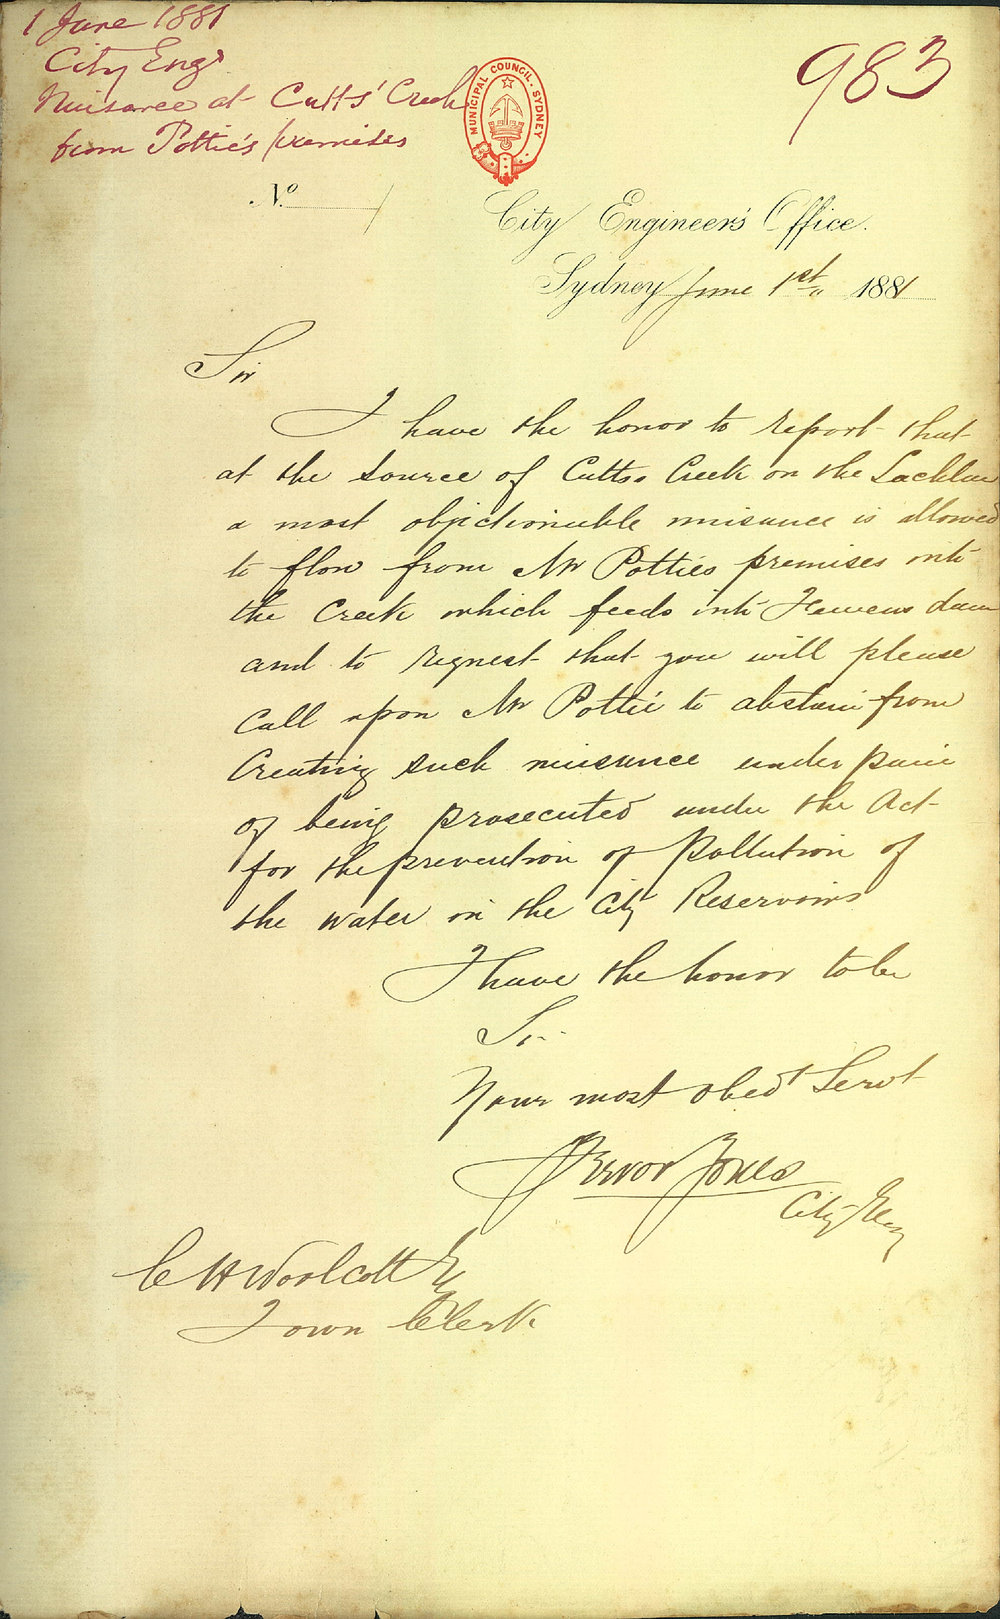 1 June 1881
City Engr
Nuisance at Cutts' Creek
from Pottie's premises
983
MUNICIPAL COUNCIL. SYDNEY
No
City Engineer's Office.
Sydney June 1st 1881
Sir
I have the honor to report that
at the source of Cutts Creek on the Lachlan
a most objectionable nuisance is allowed
to flow from Mr Potties premises into
the Creek which feeds into dam
and to request that you will please
Call upon Mr Pottie to abstain from
Creating such nuisance under pain
of being prosecuted under the Act
for the prevention of Pollution of
the water in the City Reservoirs
I have the honor to be
Sir
Your most obedt Servt
Trevor Jones
City Eng
C H Woolcott Esq
Town Clerk